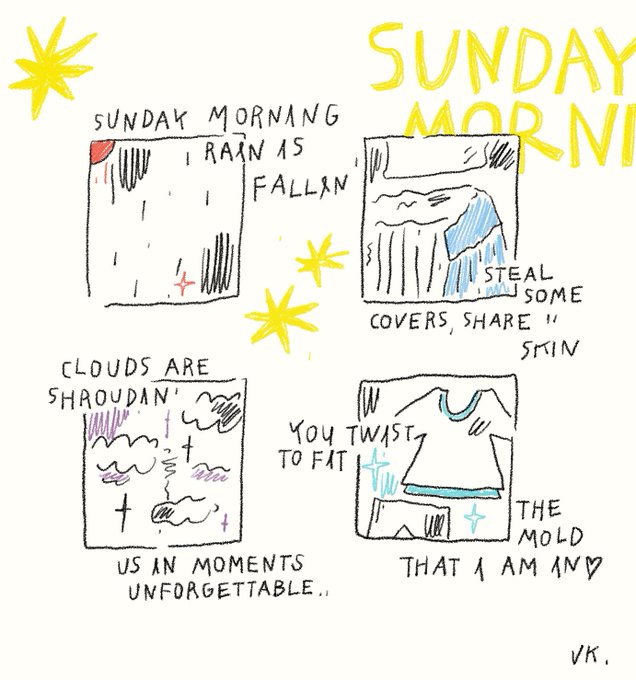 SUNDAY
MORNI
SUNDAY MORNING
RAIN IS
FALLIN'
STEAL
SOME
COVERS, SHARE "
SKIN
CLOUDS ARE
SHROUDIN'
US IN MOMENTS
UNFORGETTABLE..
YOU TWIST
TO FIT
THE
MOLD
THAT I AM IN♡
VK.